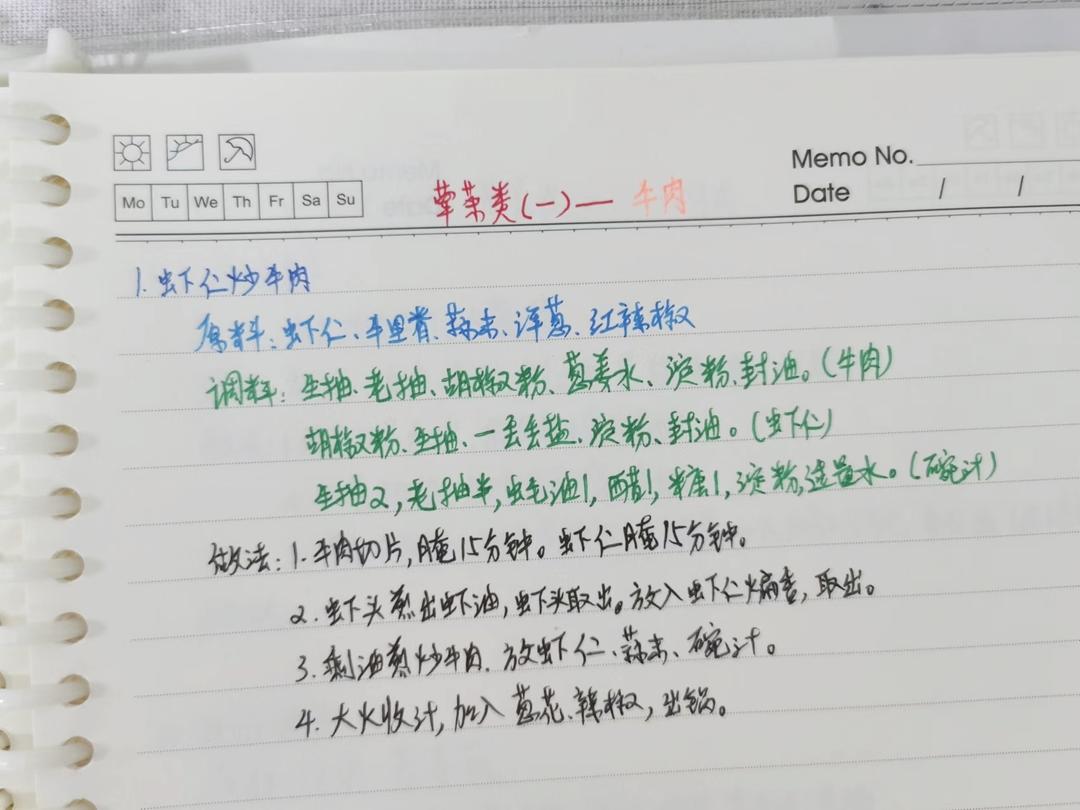 Memo No.
Date / /
Mo Tu We Th Fr Sa Su
荤菜类(一)— 牛肉
1. 虾仁炒牛肉
原料：虾仁、牛里脊、蒜末、洋葱、红辣椒
调料：生抽、老抽、胡椒粉、葱姜水、淀粉、封油。(牛肉)
胡椒粉、生抽、一丢丢盐、淀粉、封油。(虾仁)
生抽2，老抽半，蚝油1，醋1，糖1，淀粉，适量水。(碗汁)
做法：1. 牛肉切片，腌15分钟。虾仁腌15分钟。
2. 虾头煎出虾油，虾头取出。放入虾仁煸香，取出。
3. 剩油煎炒牛肉，放虾仁、蒜末、碗汁。
4. 大火收汁，加入葱花、辣椒，出锅。